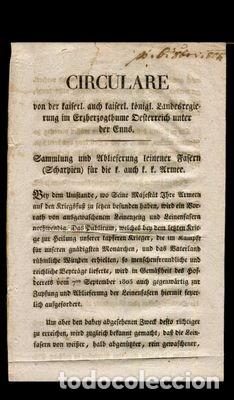 CIRCULARE
von der kaiserl. auch kaiserl. königl. Landesregie-
rung im Erzherzogthume Oesterreich unter
der Enns.
Sammlung und Ablieferung leinener Fasern
(Scharpien) für die k. auch k. k. Armee.
Bey dem Umstande, wo Seine Majestät Ihre Armeen
auf den Kriegsfuß zu setzen befunden haben, wird ein Vor-
rath von ausgewaschenem Leinenzeug und Leinenfasern
nothwendig. Das Publicum, welches bey dem letzten Krie-
ge zur Heilung unserer tapferen Krieger, die im Kampfe
für unseren gnädigsten Monarchen, und das Vaterland
rühmliche Wunden erhielten, so menschenfreundliche und
reichliche Beyträge lieferte, wird in Gemäßheit des Hof-
decrets vom 7ten September 1805 auch gegenwärtig zur
Zupfung und Ablieferung der Leinenfasern hiermit feyer-
lich aufgefordert.
Um aber den dabey abgesehenen Zweck desto richtiger
zu erreichen, wird zugleich bekannt gemacht, daß die Lein-
fasern von weißer, halb abgenützter, rein gewaschener,
todocoleccion